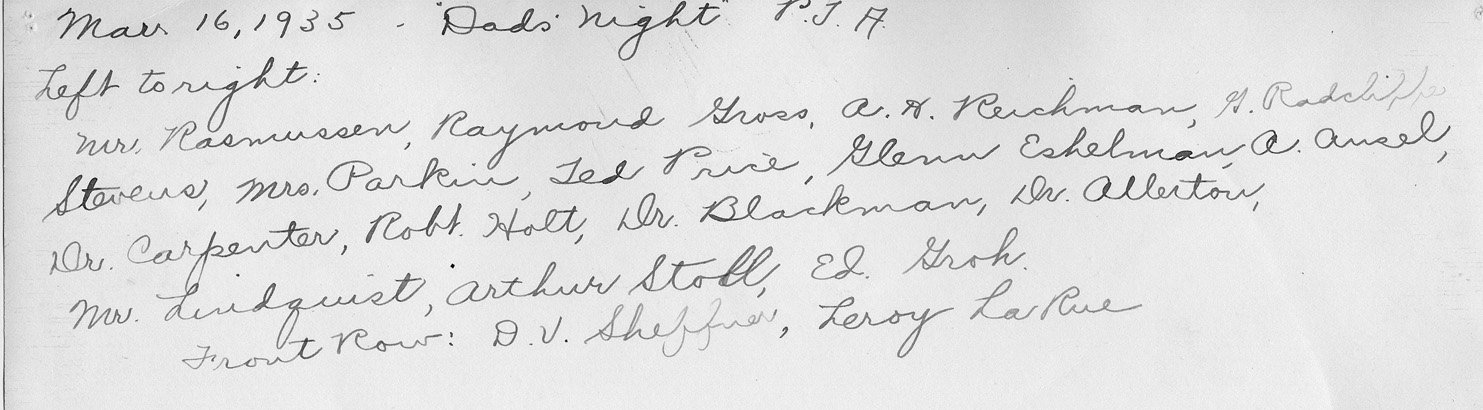 Mar. 16, 1935 - "Dads' Night" P.T.A.
Left to right:
Mr. Rasmussen, Raymond Gross, A.H. Reichman, G. Radcliffe
Stevens, Mrs. Parkin, Ted Price, Glenn Eshelman, A. Ansel,
Dr. Carpenter, Robt. Holt, Dr. Blackman, Dr. Allerton,
Mr. Lindquist, Arthur Stoll, Ed. Groh.
Front Row: D.V. Sheffner, Leroy LaRue